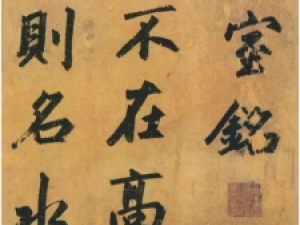 室銘
不在高
則名水